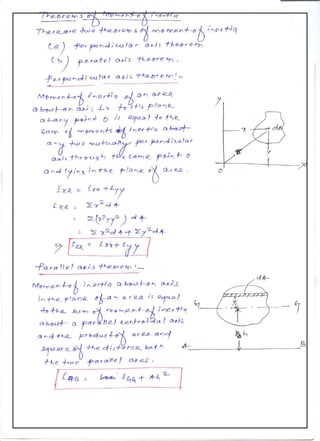 Theorems of moment of inertia
There are two theorems of moment of inertia
(a) perpendicular axis theorem
(b) parallel axis theorem.
perpendicular axis theorem!-
Moment of inertia of an area
about an axis ⊥r to its plane
at any point O is equal to the
sum of moments of inertia about
any two mutually perpendicular
axis through the same point O
and lying in the plane of area.
Izz = Ixx + Iyy
Izz = Σr²dA
= Σ(x²+y²) dA
= Σx²dA + Σy²dA
Izz = Ixx + Iyy
Parallel axis theorem!-
Moment of inertia about an axis
in the plane of an area is equal
to the sum of moment of inertia
about a parallel centroidal axis
and the product of area and
square of the distance betn
the two parallel axes.
IAB = IGG + Ah²
y
x
dA
O
x
dA
G
G
h
A
B